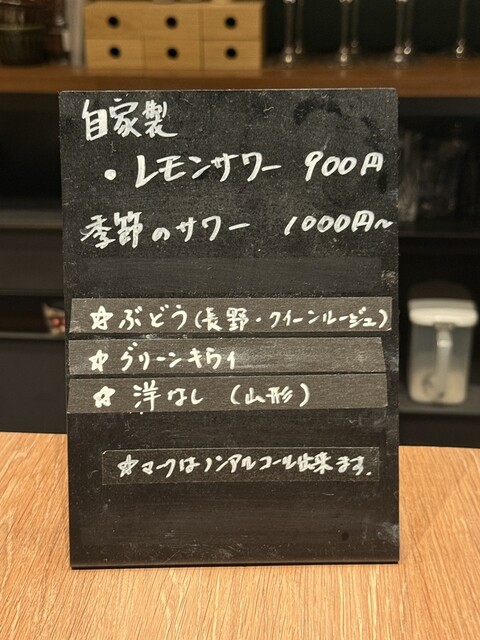 自家製
・レモンサワー 900円
季節のサワー 1000円~
☆ぶどう(長野・クイーンルージュ)
☆グリーンキウイ
☆洋なし (山形)
☆マークはノンアルコール出来ます.